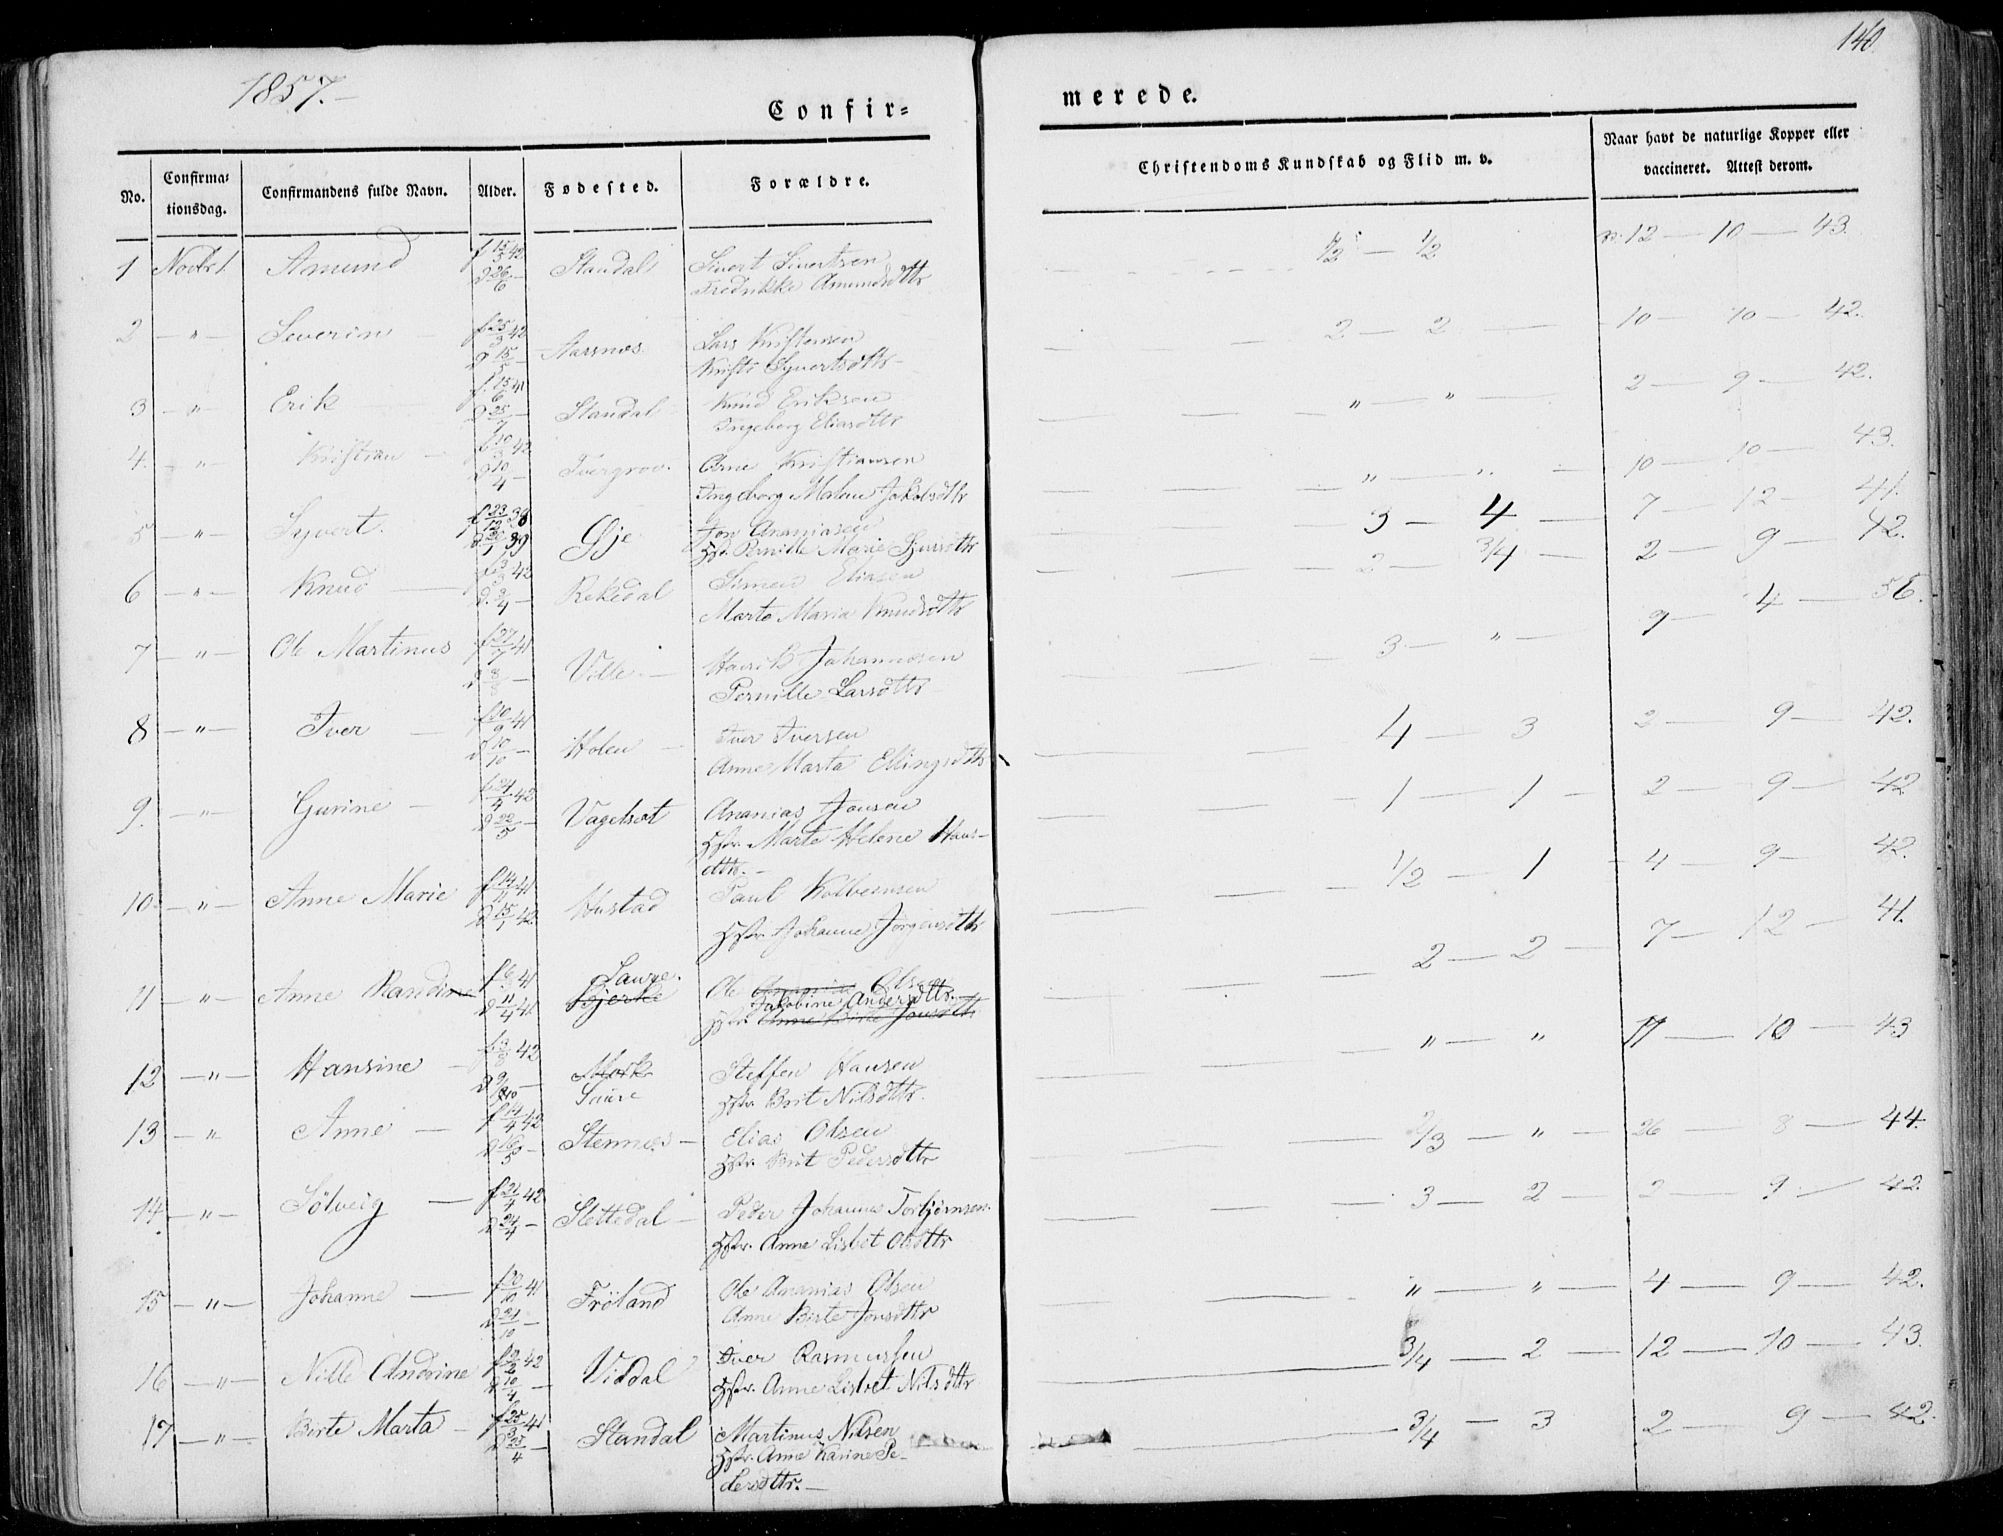 1857.-
140
Confir=
merede.
No.
Confirma=
tionsdag.
Confirmandens fulde Navn.
Alder.
Fødested.
Forældre.
Christendoms Kundskab og Flid m. v.
Naar havt de naturlige Kopper eller
vaccineret. Attest derom.
1 Novbr 1. Amund f 15/3 42 Standal Sivert Sivertsen 1/2 — 1/2 12 — 10 — 43.
d 26/6 — Fredrikke Amundsdttr
2 — " — Severin — f 25/3 42 Aarsnæs Lars Kristensen 2 — 2 — 10 — 10 — 42.
d 15/5 Syvertsdttr —
3 — " — Erik f. 15/6 41 Standal — Knud Eriksen " — " — 2 — 9 — 42.
d 25/7 — Ingeborg Eliasdttr
4. — " — Kristian — f 10/3 42 Arne Kristiansen " — " 10 — 10 — 43.
d 10/4 — Ingeborg Malene Jakobsdttr
5 — " — Syvert. f 23/12 38 Øje Jon Ananiasen 3 — 4 — 7 — 12 — 41.
d 20/1 39 Pernille Marie
6 — " — Knud — f 3/3 42 Rekkedal Simen Eliasen 2 — 3/4 — 2 — 9 — 42.
d. 3/4 — Marte Maria Knudsdttr
7 — " — Ole Martinus f 27/7 41 Volle — Henrik Johannesen 3 — " — 9 — 4 — 56.
d 8/8 — Pernille Larsdttr —
8 — " — Iver — f 10/9 41 Holen — Iver Iversen 4 — 3 2 — 9 — 42.
d 10/10 — Anne Marta Ellingsdttr
9. — " — Gurine — f 24/4 42 Vagelsæt Ananias Jonsen 1 — 1 — 2 — 9 — 42
d 22/5 — Hstr. Marte Helene Hans-
dttr. —
10. — " — Anne Marie f 14/11 41 Hustad Paul Kolbeinsen 1/2 — 1 — 4 — 9 — 42.
d 15/1 42. Hstr. Johanne Jørgensdttr
11 — " — Anne Randine f 6/3 41 Saure. Ole Olsen 2 — 2 — 7 — 12 — 41.
d 11/4 41 Bjerke Jakobine Andersdttr.
Hstr. Anne Birte Jonsdttr
12 — " — Hansine — f 3/9 42 Mork Steffen Hansen " — " 17 — 10 — 43
d 9/10 — Saure Hstr. Brit Nilsdttr.
13 — " Anne — f 14/4 42 Stennæs — Elias Olsen 2/3 — " — 26 — 8 — 44.
d 16/5 — Hstr. Brit Pedersdttr
14. — " — Sølveig — f 21/4 42 Slettedal — Peder Johannes Torbjørnsen. 3 — 2 — 2 — 9 — 42.
d 24/4 — Hstr. Anne Lisbet Olsdttr
15 — " — Johanne — f 20/10 41 Frøland Ole Ananias Olsen " — " — 4 — 9 — 42.
d 24/10 — Anne Birte Jonsdttr
16 — " — Nille Andrine f 9/4 42 Viddal Iver Rasmussen 3/4 — 2 — 12 — 10 — 43.
d 10/4 — Hstr. Anne Lisbet Nilsdttr
17 — " — Birte Marta — f 25/3 41 Standal Martinus Nilsen 3/4 — 3 2 — 9 — 42.
d 25/4 — Hstr. Anne Karine Pe-
dersdttr. —